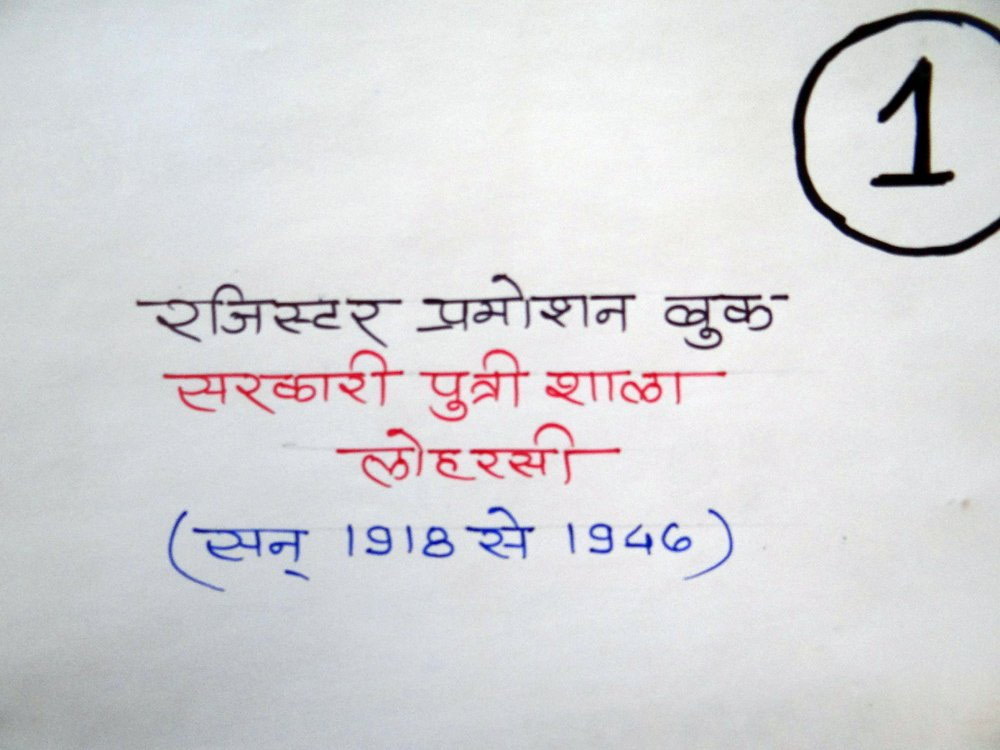 1
रजिस्टर प्रमोशन बुक
सरकारी पुत्री शाला
लोहरसी
(सन् 1918 से 1946)